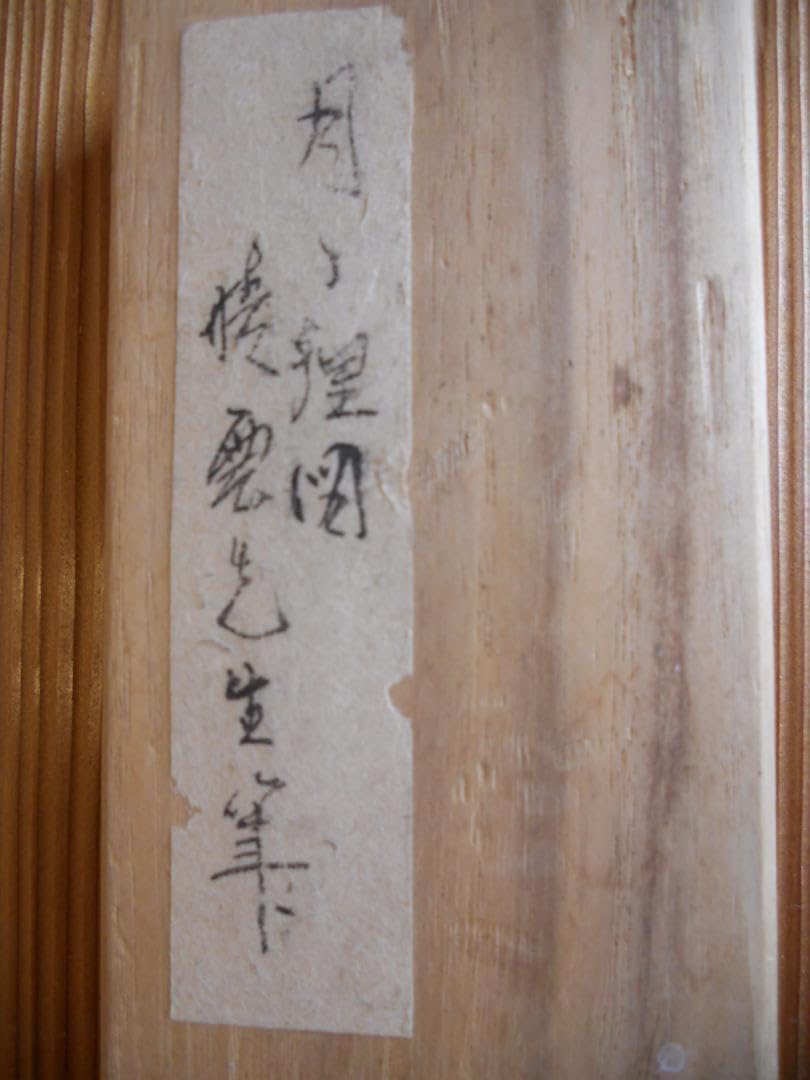 月ニ狸図
暁雲先生筆